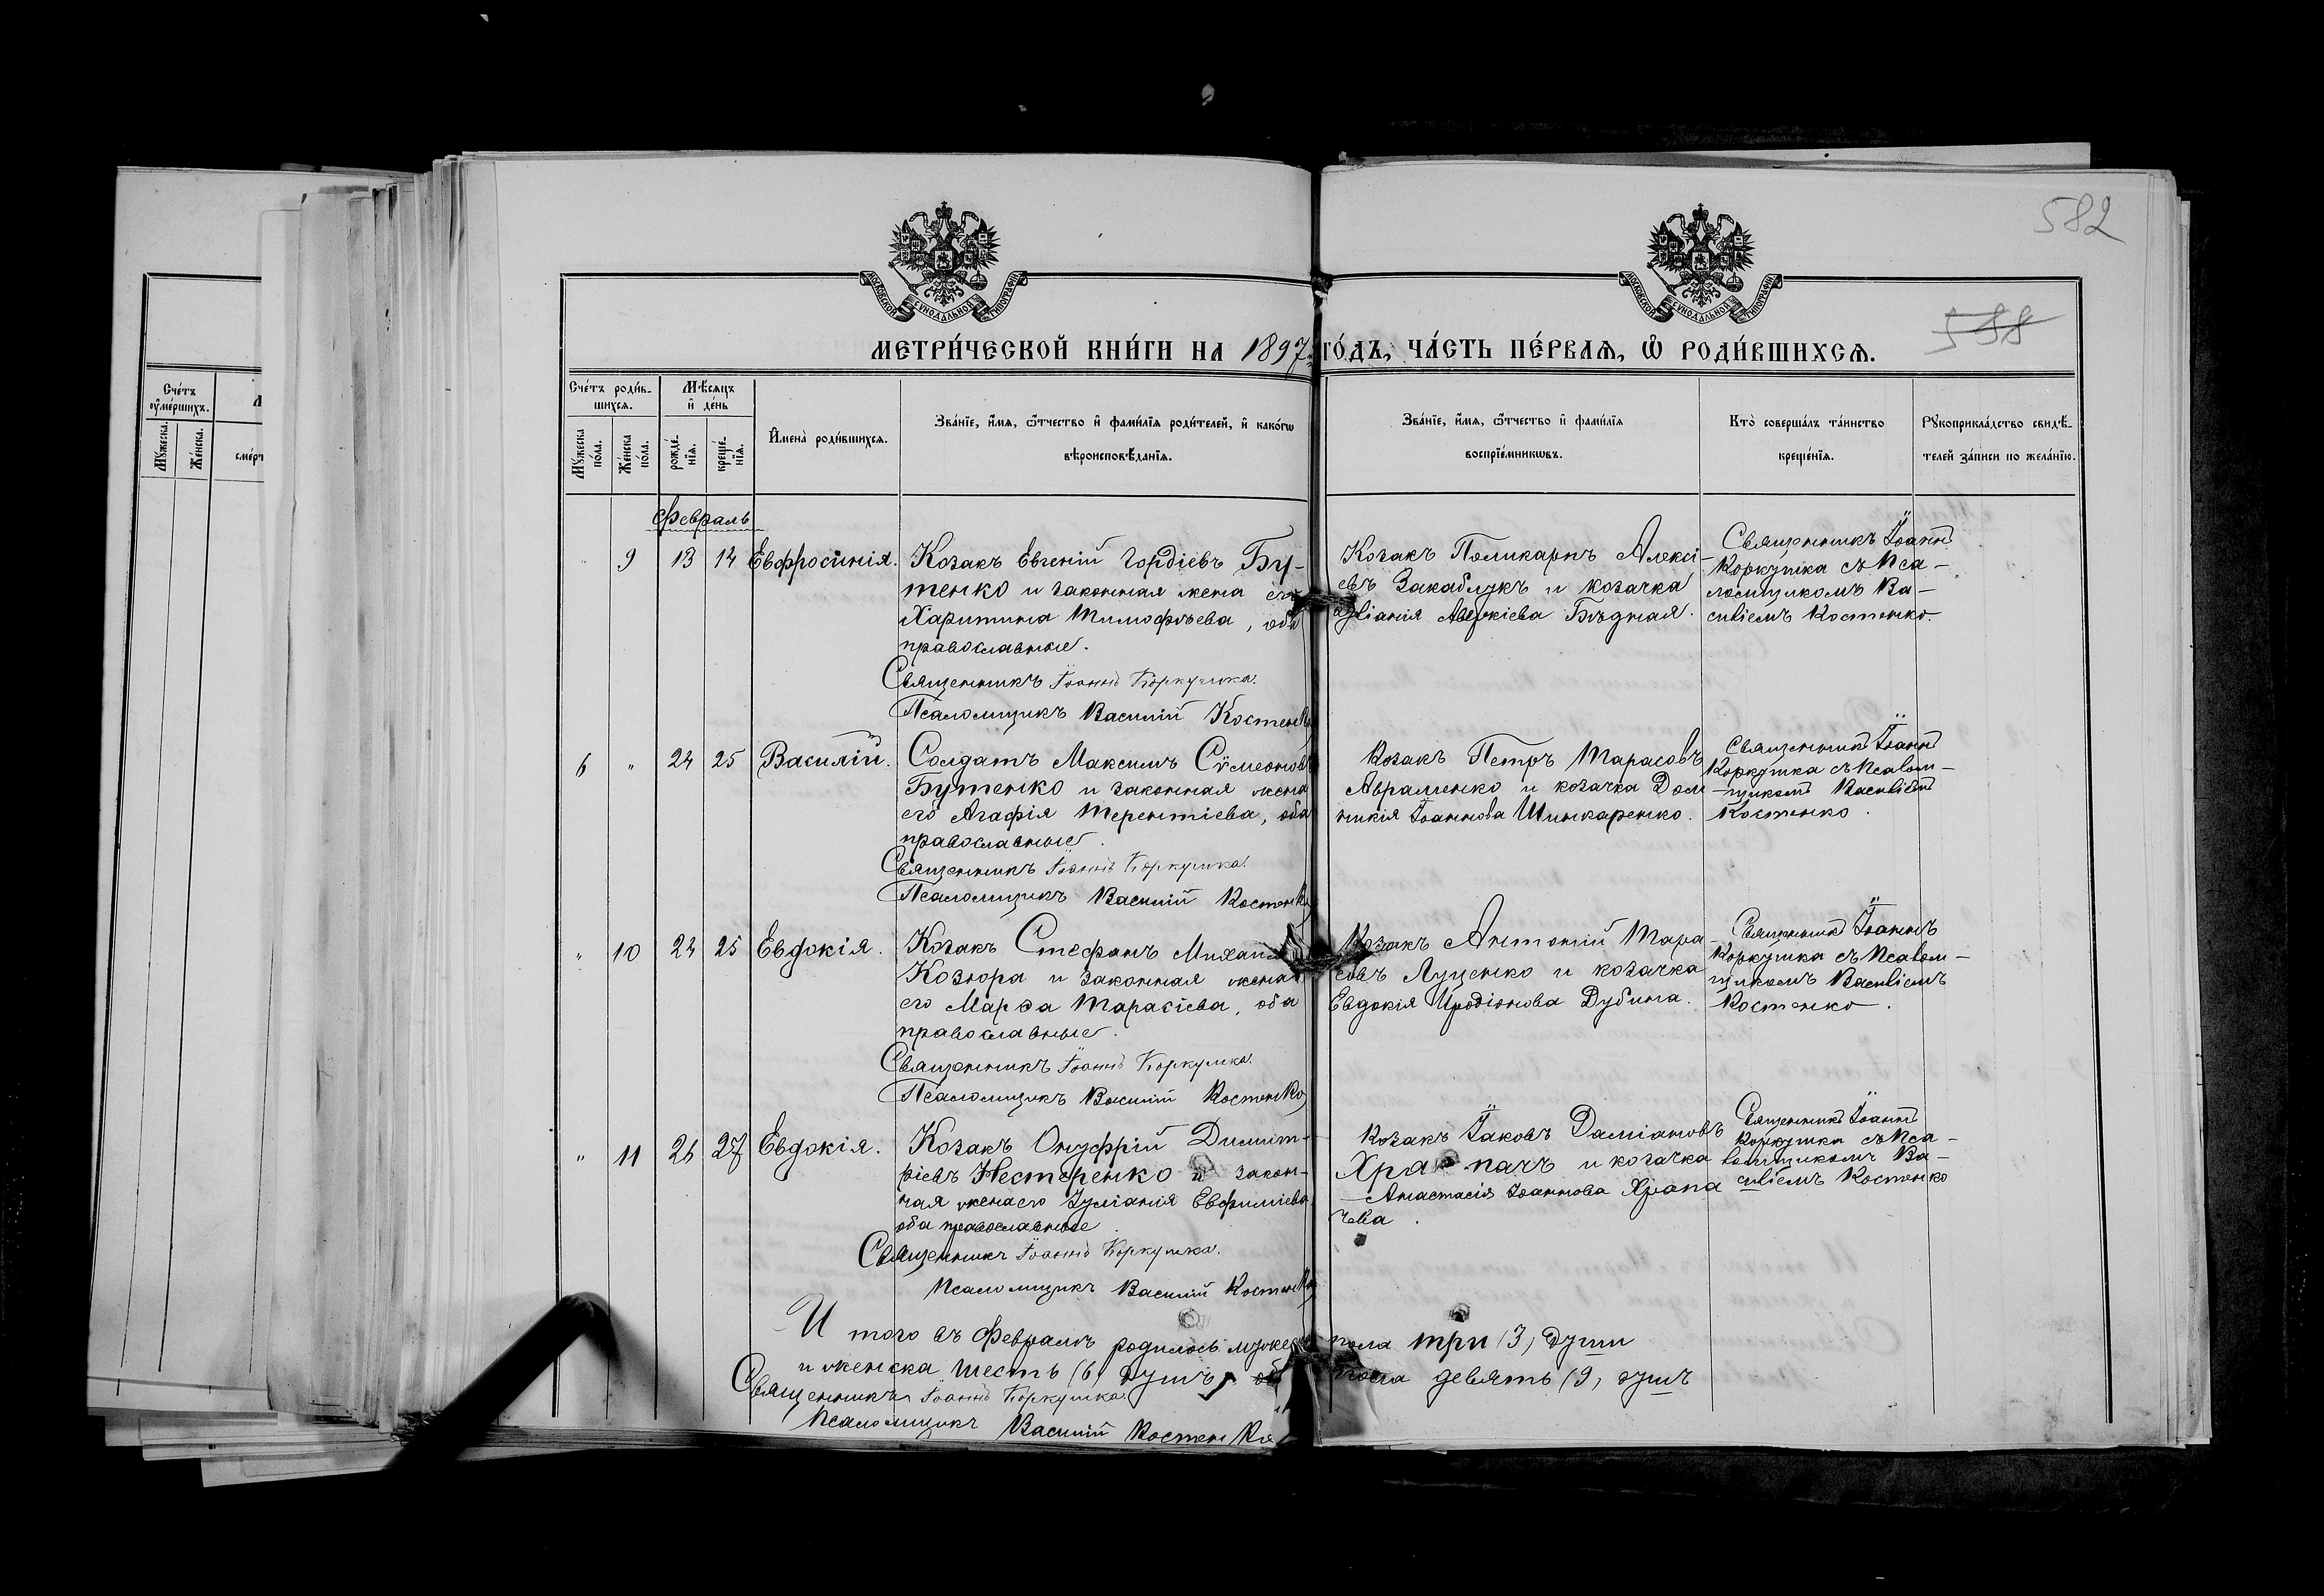 582
588
МОСКОВСКОЙ СѴНОДАЛЬНОЙ ТИПОГРАФІИ
МОСКОВСКОЙ СѴНОДАЛЬНОЙ ТИПОГРАФІИ
МЕТРИ́ЧЕСКОЙ КНИ́ГИ НА 1897 ГО́ДЪ, ЧА́СТЬ ПЕ́РВАЯ, Ѡ҆ РОДИ́ВШИХСЯ.
Сче́тъ оу҆ме́ршихъ.
Мꙋ́жеска.
Же́нска.
Сче́тъ роди́вшихся.
Мꙋ́жеска по́ла.
Же́нска по́ла.
Мѣ́сяцъ и҆ де́нь
рожде́нїя.
креще́нїя.
И҆мена̀ роди́вшихся.
Зва́нїе, и҆́мя, ѻ҆́тчество и҆ фами́лїя роди́телей, и҆ како́гѡ
вѣроисповѣ́данїя.
Зва́нїе, и҆́мя, ѻ҆́тчество и҆ фами́лїя
воспрїе́мникѡвъ.
Кто̀ соверша́лъ та́инство
креще́нїя.
Рꙋкоприкла́дство свидѣ́-
телей за́писи по жела́нїю.
Февраль
" 9 13 14 Евфросинія.
Козакъ Евгеній Гордіевъ Бу-
тенко и законная жена его
Харитина Тимофѣева, оба
православные.
Священникъ Іоаннъ Коркушка.
Псаломщикъ Василій Костенко
Козакъ Поликарпъ Алексі-
евъ Закаблукъ и козачка
Іуліанія Аверкіева Бѣдная.
Священникъ Іоаннъ
Коркушка съ Пса-
ломщикомъ Ва-
силіемъ Костенко.
6 " 24 25 Василій.
Солдатъ Максимъ Сѵмеоновъ
Бутенко и законная жена
его Агафія Терентіева, оба
православные.
Священникъ Іоаннъ Коркушка.
Псаломщикъ Василій Костенко
Козакъ Петръ Тарасовъ
Авраменко и козачка Дом
никія Іоаннова Шинкаренко.
Священникъ Іоаннъ
Коркушка съ Псалом-
-щикомъ Василіемъ
Костенко.
" 10 24 25 Евдокія.
Козакъ Стефанъ Михаил
Козюра и законная жена
его Марѳа Тарасіева, оба
православные.
Священникъ Іоаннъ Коркушка.
Псаломщикъ Василій Костенко
Козакъ Антоній Тара-
совъ Луценко и козачка
Евдокія Иродіонова Дубина.
Священникъ Іоаннъ
Коркушка съ Псалом-
щикомъ Василіемъ
Костенко.
" 11 26 27 Евдокія.
Козакъ Онуфрій Димит-
ріевъ Нестеренко и закон-
ная жена его Іуліанія Евфиміева
оба православные.
Священникъ Іоаннъ Коркушка.
Псаломщикъ Василій Костенко
Козакъ Іаковъ Даміановъ
Храпачъ и козачка
Анастасія Іоаннова Храпа
чева.
Священникъ Іоаннъ
Коркушка съ Пса-
ломщикомъ Ва-
силіемъ Костенко
Итого въ Февралѣ родилось мужеска пола три (3) души
и женска шесть (6) душъ, об пола девять (9) душъ
Священникъ Іоаннъ Коркушка.
Псаломщикъ Василій Костенко